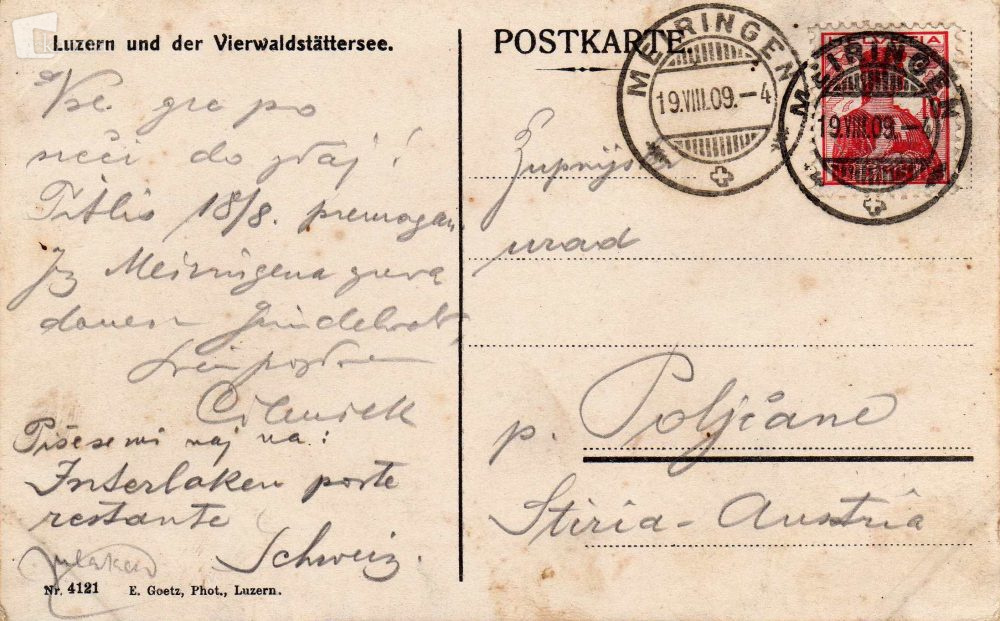 Luzern und der Vierwaldstättersee.
POSTKARTE
MEIRINGEN
19.VIII.09.-4
HELVETIA
MEIRINGEN
19.VIII.09.-4
Vse gre po
sreči do zdaj!
Titlis 18/8. premagan.
Iz Meiringena grem
danes v Grindelwald,
Piše se mi naj na:
Interlaken poste
restante
Schweiz.
Nr. 4121 E. Goetz, Phot., Luzern.
Župnijski
urad
p. Poljčane
Stiria-Austria